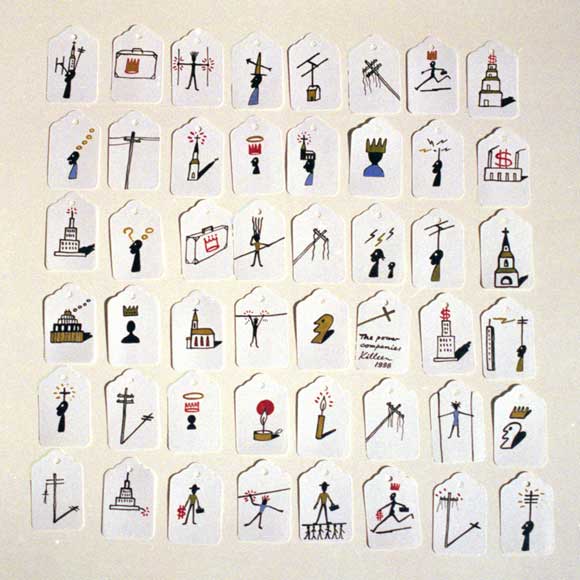 The power
companies
Killeen
1998